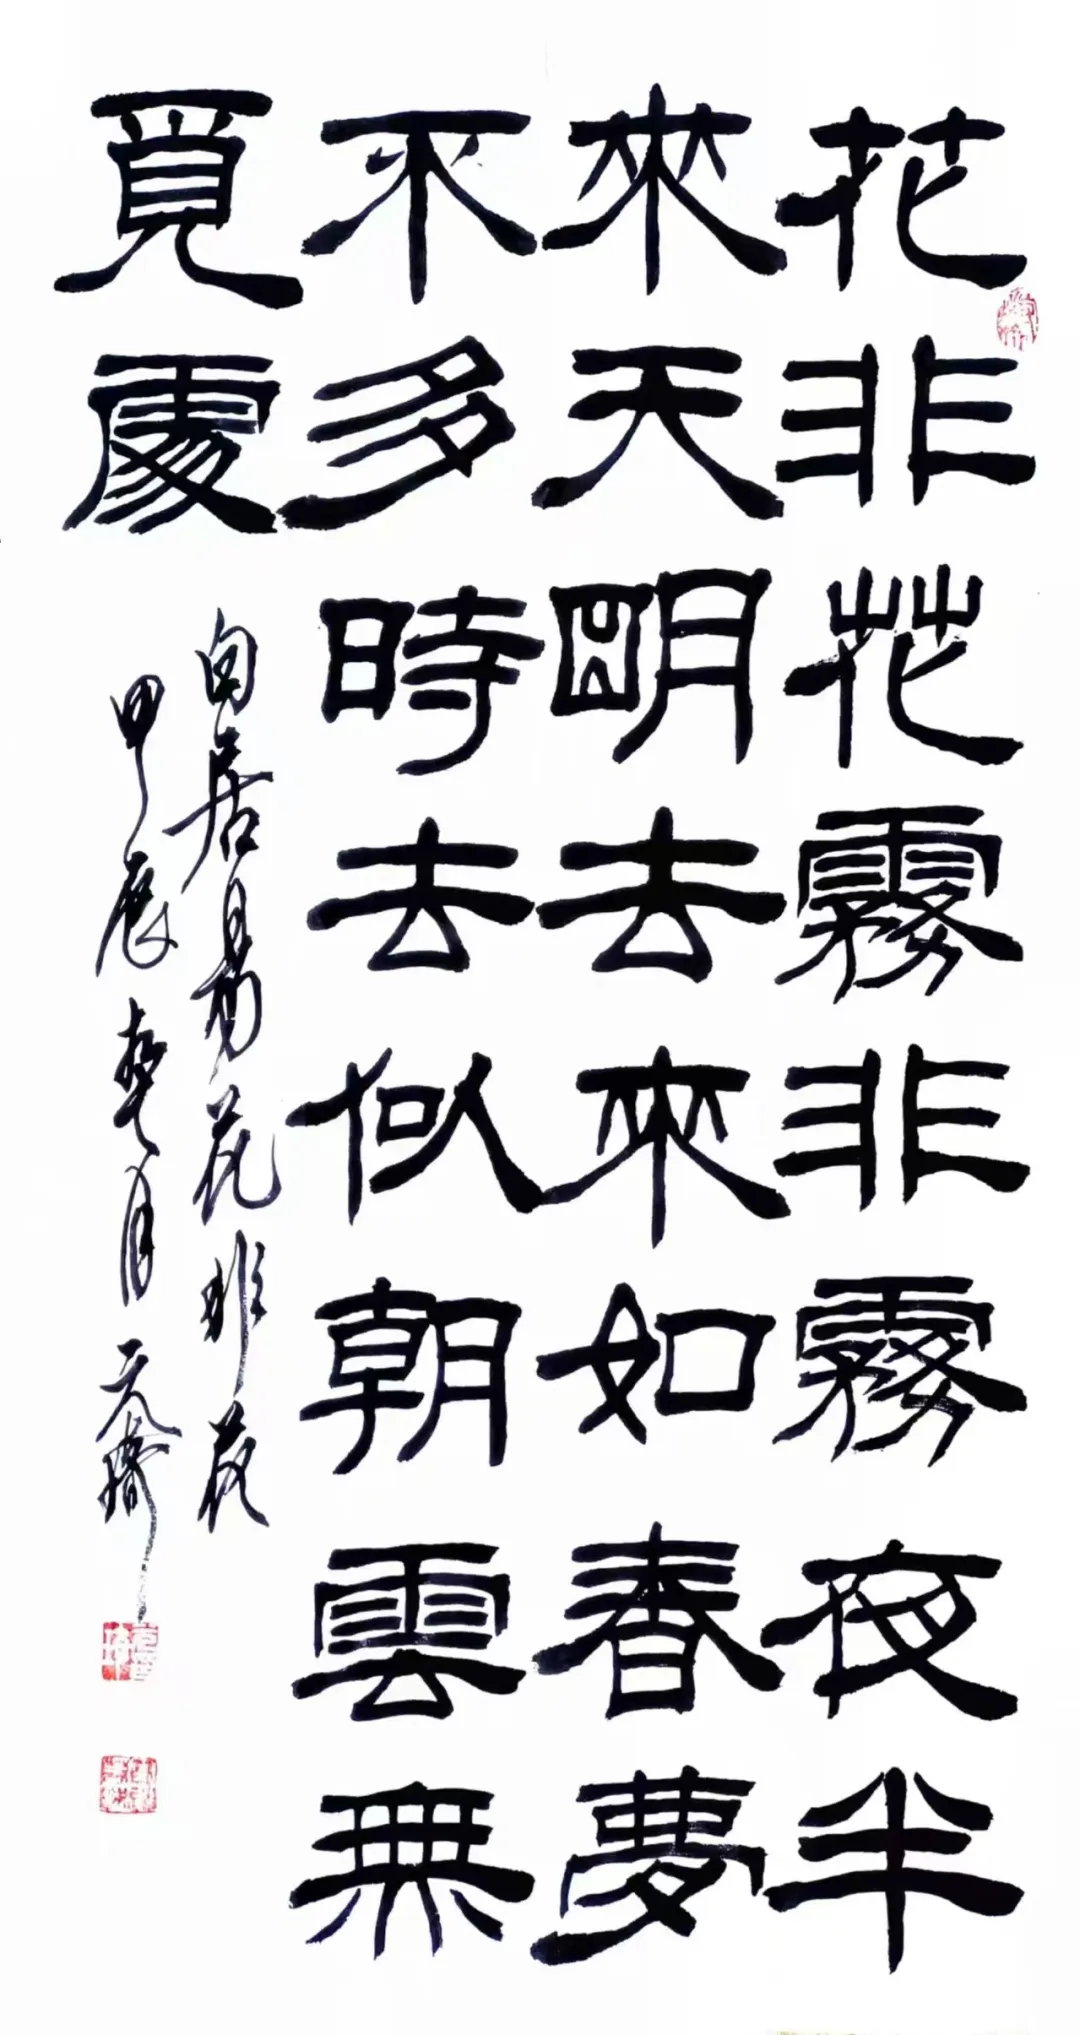 花非花霧非霧夜半
來天明去來如春夢
不多時去似朝雲無
覓處
白居易花非花
甲辰
月天